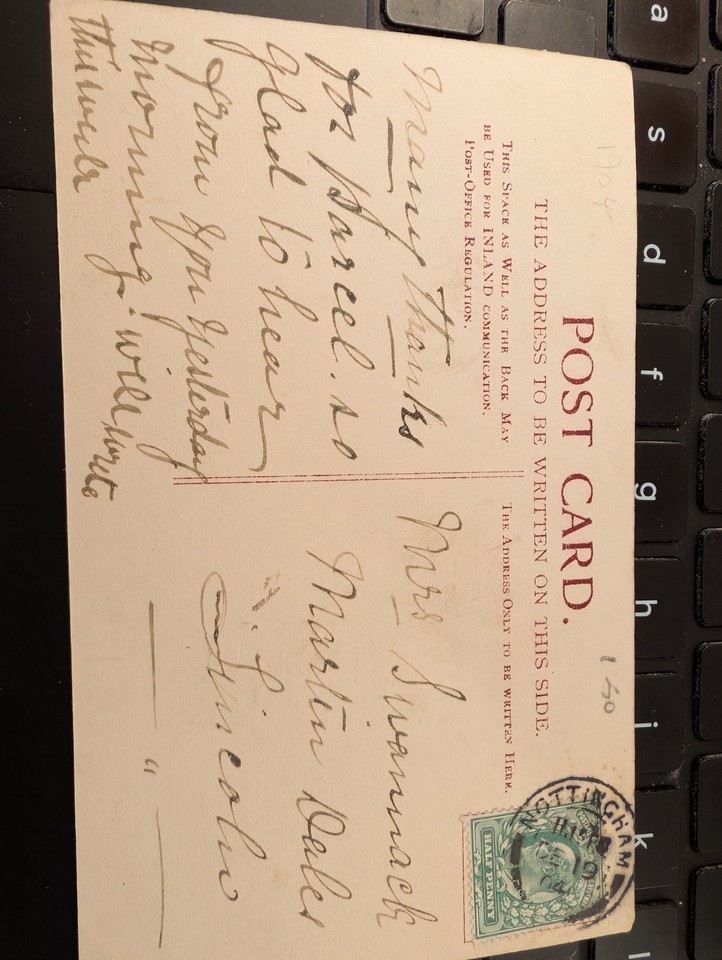 1904
POST CARD.
THE ADDRESS TO BE WRITTEN ON THIS SIDE.
THIS SPACE AS WELL AS THE BACK MAY
BE USED FOR INLAND COMMUNICATION.
POST-OFFICE REGULATION.
THE ADDRESS ONLY TO BE WRITTEN HERE.
Many thanks
for parcel. so
glad to hear
from you yesterday
morning. will write
this week
Mrs Swannack
Martin Dales
Lincoln
"
NOTTINGHAM
HALF PENNY
a
s
d
f
g
h
j
k
l